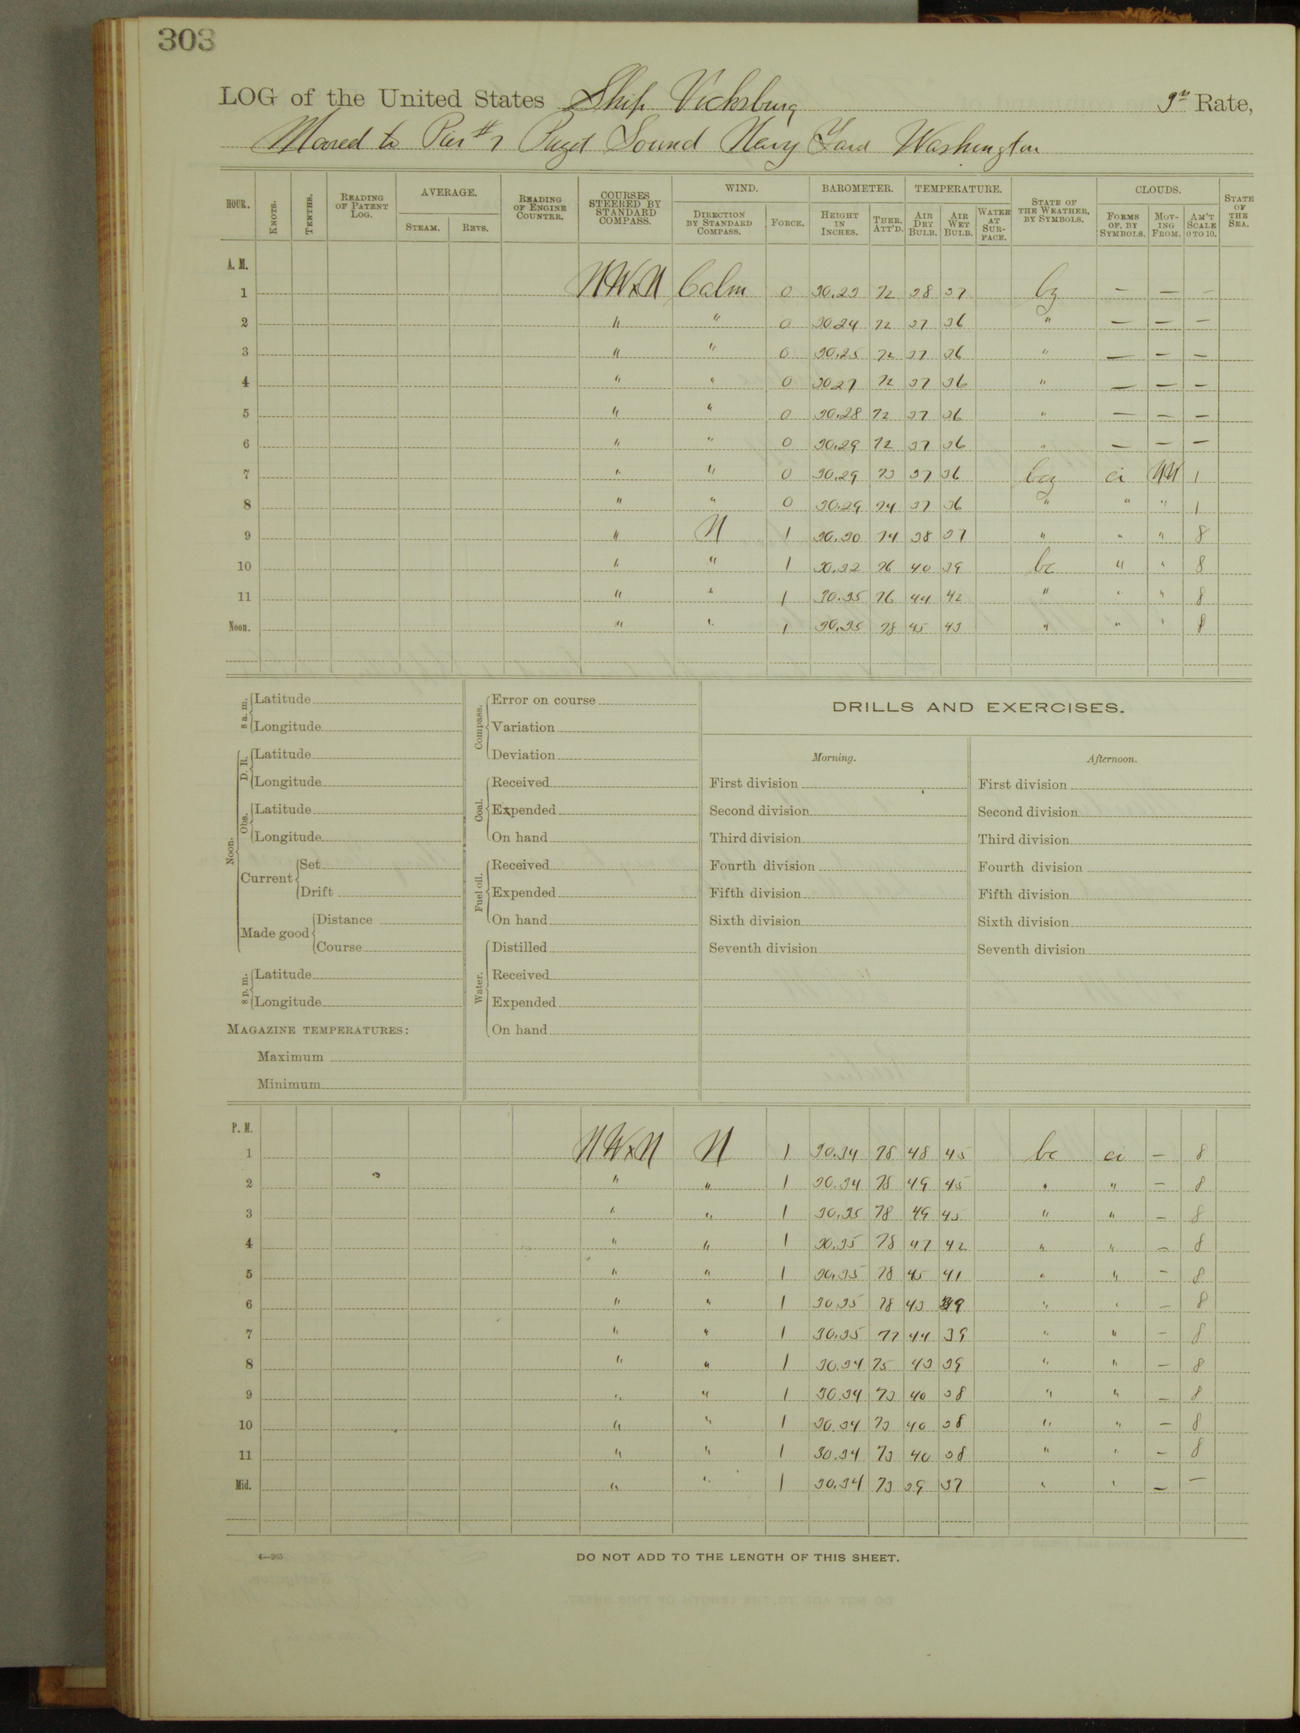 303
LOG of the United States Ship Vicksburg 3rd Rate,
Moored to Pier #7 Puget Sound Navy Yard Washington
HOUR. KNOTS. TENTHS. READING OF PATENT LOG. AVERAGE. STEAM. REVS. READING OF ENGINE COUNTER. COURSES STEERED BY STANDARD COMPASS. WIND. DIRECTION BY STANDARD COMPASS. FORCE. BAROMETER. HEIGHT IN INCHES. THER. ATT'D. TEMPERATURE. AIR DRY BULB. AIR WET BULB. WATER AT SURFACE. STATE OF THE WEATHER, BY SYMBOLS. CLOUDS. FORMS OF, BY SYMBOLS. MOVING FROM. AM'T SCALE 0 TO 10. STATE OF THE SEA.
A. M.
1 NWxN Calm 0 30.23 72 38 37 bz — — —
2 " " 0 30.24 72 37 36 " — — —
3 " " 0 30.25 72 37 36 " — — —
4 " " 0 30.27 72 37 36 " — — —
5 " " 0 30.28 72 37 36 " — — —
6 " " 0 30.29 72 37 36 " — — —
7 " " 0 30.29 73 37 36 bcz ci NW 1
8 " " 0 30.29 74 37 36 " " " 1
9 " N 1 30.30 74 38 37 " " " 8
10 " " 1 30.32 76 40 39 bc " " 8
11 " " 1 30.35 76 44 42 " " " 8
Noon. " " 1 30.35 78 45 43 " " " 8
DRILLS AND EXERCISES.
Morning. Afternoon.
8 a. m. Latitude
Longitude
Noon. D. R. Latitude
Longitude
Obs. Latitude
Longitude
Current Set
Drift
Made good Distance
Course
8 p. m. Latitude
Longitude
MAGAZINE TEMPERATURES:
Maximum
Minimum
Compass. Error on course
Variation
Deviation
Coal. Received
Expended
On hand
Fuel oil. Received
Expended
On hand
Water. Distilled
Received
Expended
On hand
First division
Second division
Third division
Fourth division
Fifth division
Sixth division
Seventh division
First division
Second division
Third division
Fourth division
Fifth division
Sixth division
Seventh division
P. M.
1 NWxN N 1 30.34 78 48 45 bc ci — 8
2 " " 1 30.34 78 49 45 " " — 8
3 " " 1 30.35 78 49 45 " " — 8
4 " " 1 30.35 78 47 42 " " — 8
5 " " 1 30.35 78 45 41 " " — 8
6 " " 1 30.35 78 43 39 " " — 8
7 " " 1 30.35 77 44 39 " " — 8
8 " " 1 30.34 75 43 39 " " — 8
9 " " 1 30.34 73 40 38 " " — 8
10 " " 1 30.34 73 40 38 " " — 8
11 " " 1 30.34 73 40 38 " " — 8
Mid. " " 1 30.34 73 39 37 " " — —
4—265
DO NOT ADD TO THE LENGTH OF THIS SHEET.